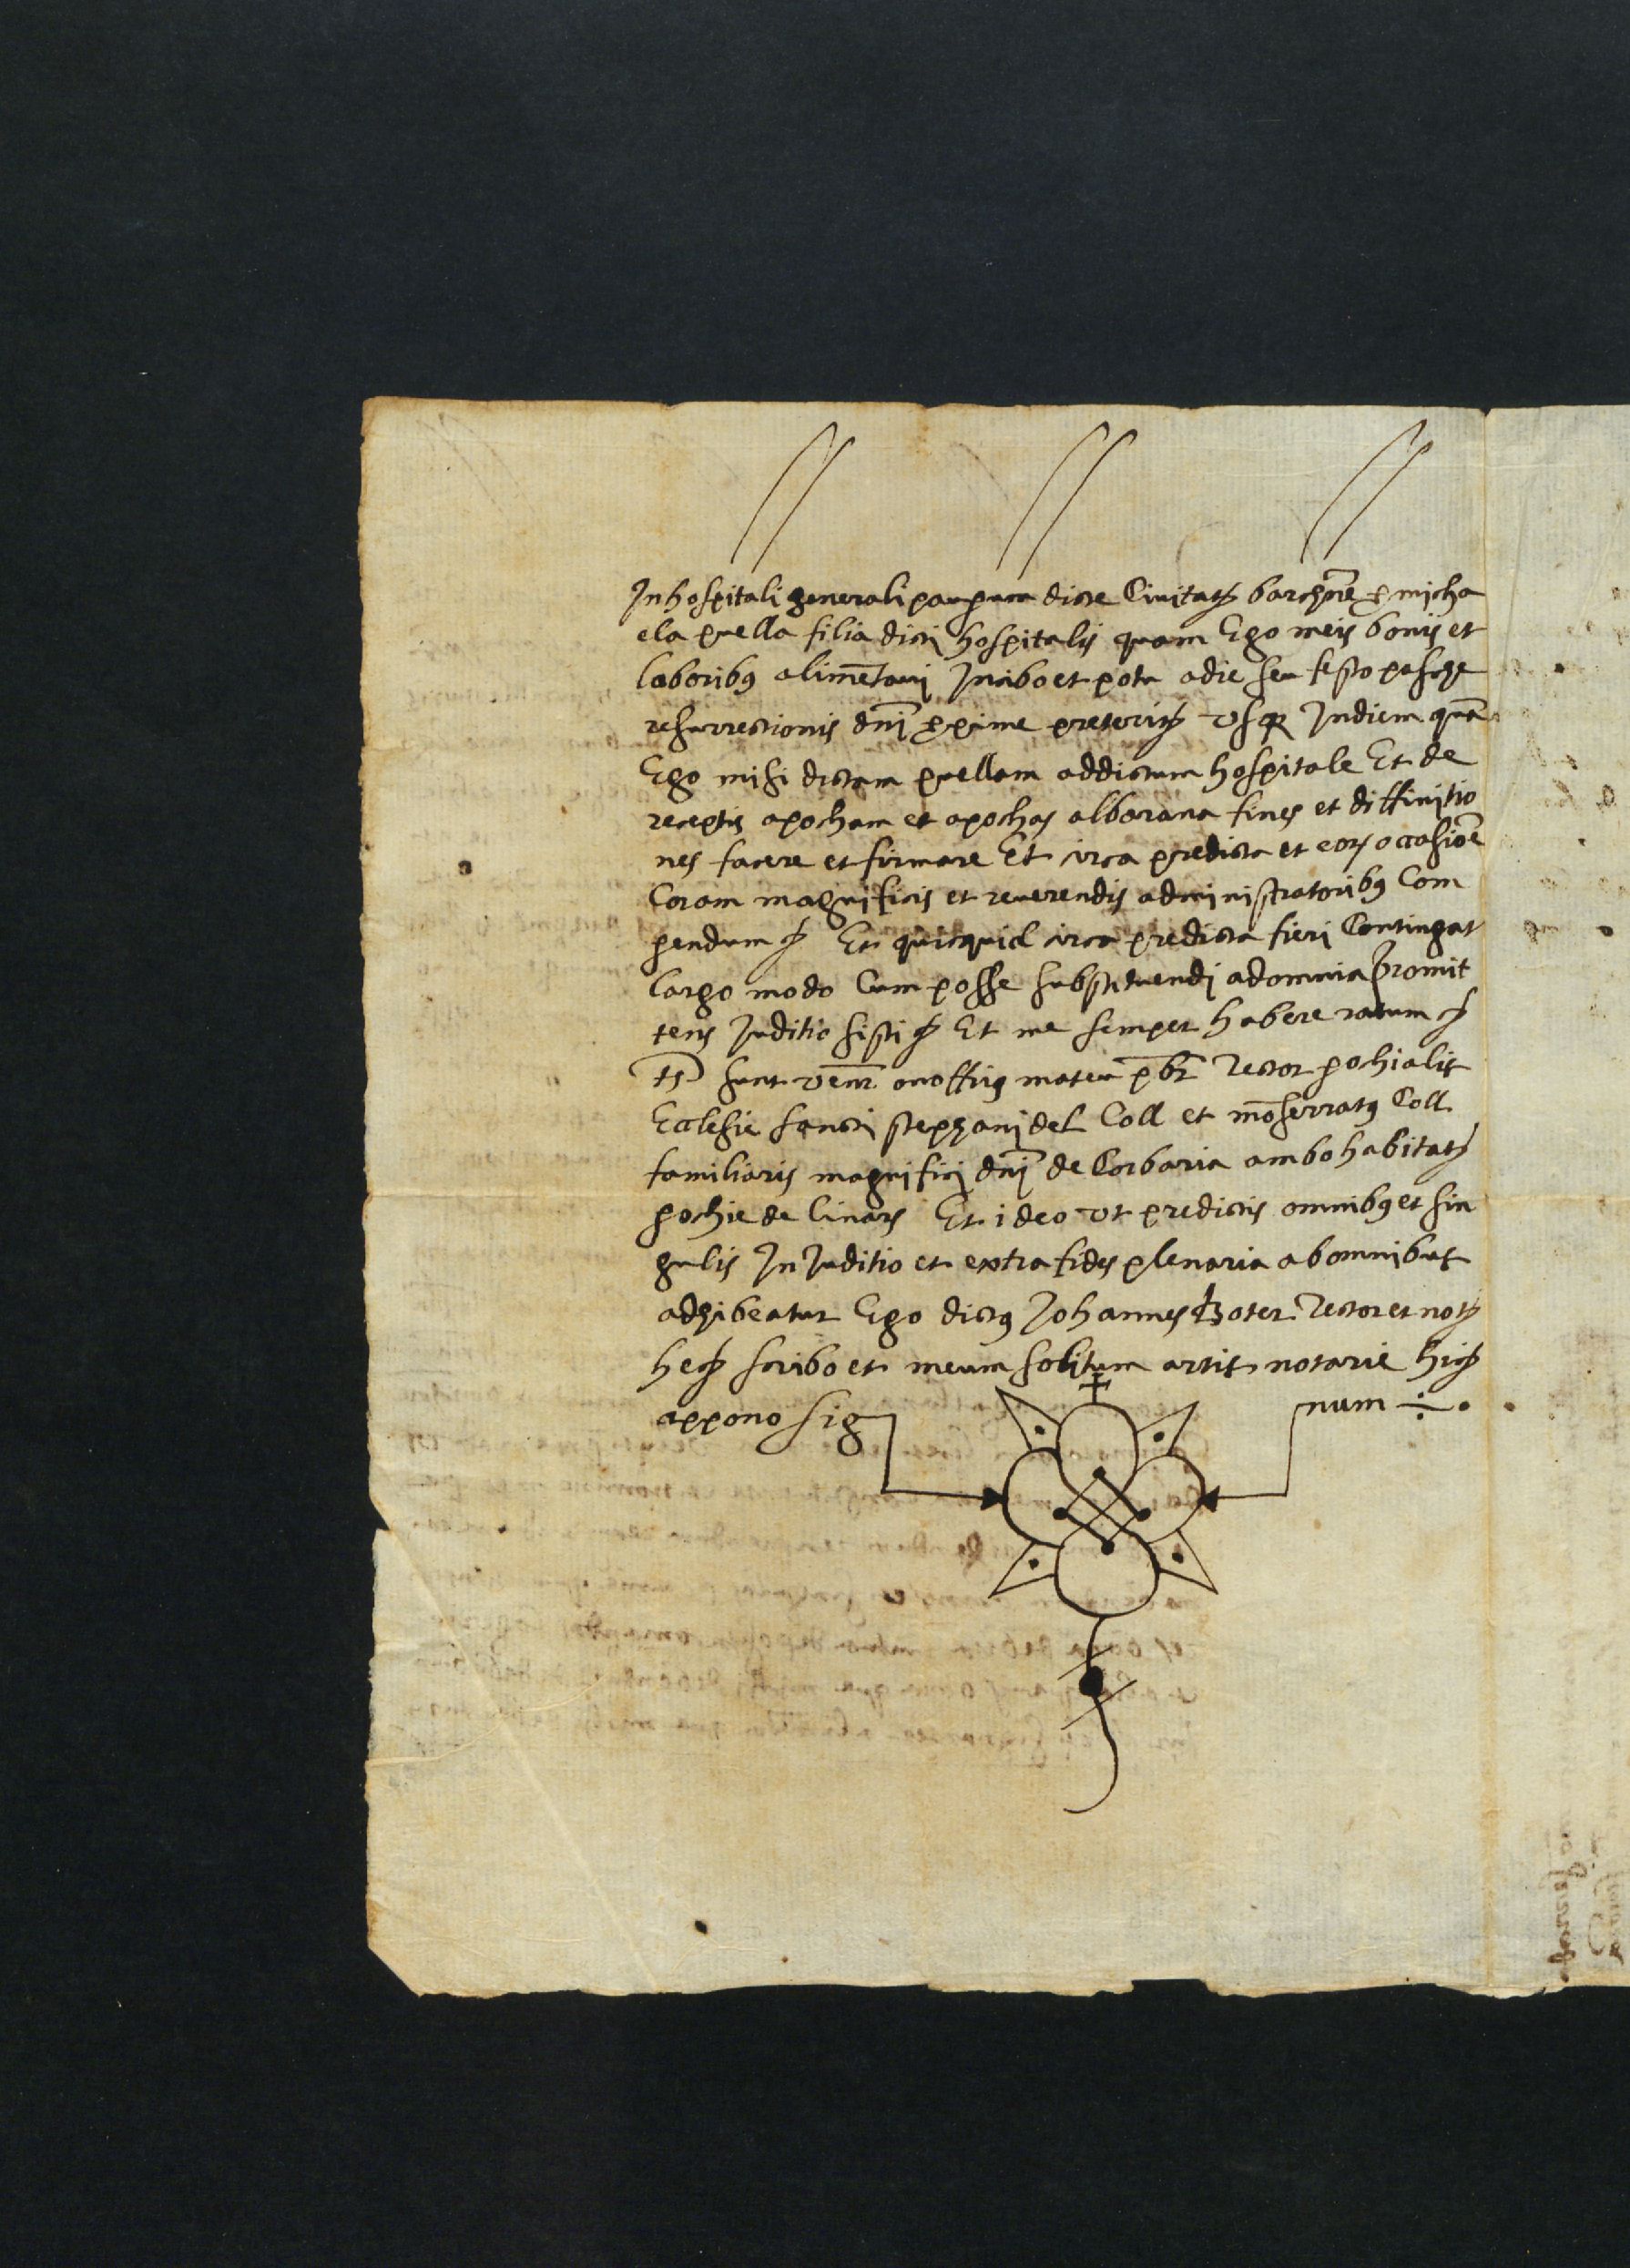 In hospitali generali pauperum dicte Ciuitatis barchne p micha
ela puella filia dicti hospitalis quam Ego meis bonis et
laboribus alimentaui In cibo et potu a die seu festo pasche
resurrectionis dni pxime preteritis vsque In diem qua
Ego misi dictam puellam ad dictum hospitale Et de
receptis apocham et apochas albarana fines et diffinitio
nes facere et firmare Et circa predicta et eorum occasioe
Coram magnificis et reuerendis administratoribus Com
parendum etc Et quicquid circa predicta fieri Contingat
largo modo Cum posse substituendi ad omnia Promit
tens Juditio sisti etc Et me semper habere ratum etc
ts sunt vener onoffrius mateu pbr Rector parrochialis
Ecclesie sancti stephani del Coll et moserratus Coll
familiaris magnifici dni de Corbaria ambo habitates
parrochie de linars Et ideo vt predictis omnibus et sin
gulis In Juditio et extra fides plenaria ab omnibus
adhibeatur Ego dictus Johannes Boter Rector et notus
hec scribo et meum solitum artis notarie hic
appono sig num